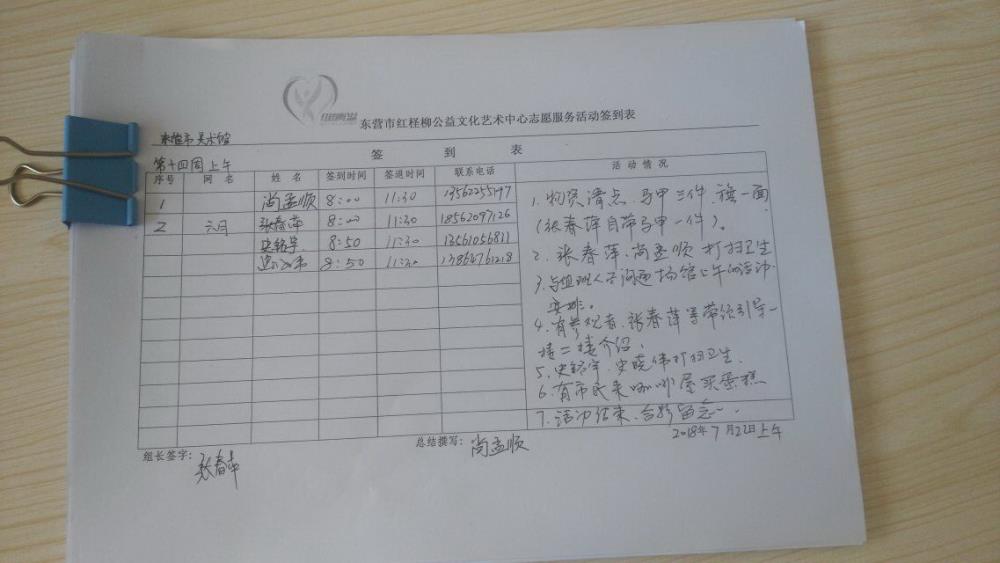 东营市红柽柳公益文化艺术中心志愿服务活动签到表
东营市美术馆
签 到 表
第十四周上午
序号 网 名 姓 名 签到时间 签退时间 联系电话 活 动 情 况
1 尚孟顺 8:00 11:30 13562255197
2 六月 张春萍 8:00 11:30 18562097126
史铭宇 8:50 11:30 13561056811
8:50 11:30 13864761218
1. 物资清点, 马甲三件, 旗一面
(张春萍自带马甲一件)。
2. 张春萍、尚孟顺打扫卫生
3. 与值班人员沟通场馆上午的活动
安排。
4. 有参观者, 张春萍等带领引导一
楼二楼介绍。
5. 史铭宇、史晓伟打扫卫生.
6. 有市民来咖啡屋买蛋糕
7. 活动结束、合影留念..
组长签字: 张春萍
总结撰写: 尚孟顺
2018年7月22日上午